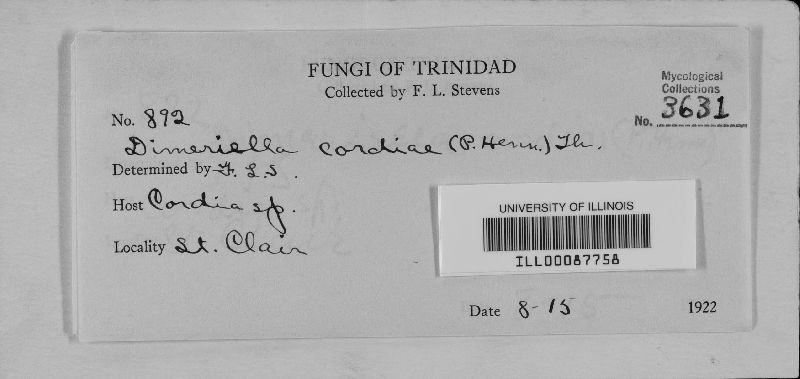 FUNGI OF TRINIDAD
Collected by F. L. Stevens
Mycological
Collections
No. 3631
No. 892
Dimeriella cordiae (P. Henn.) Th.
Determined by F. L. S.
Host Cordia sp.
Locality St. Clair
UNIVERSITY OF ILLINOIS
ILL00087758
Date 8-15 1922